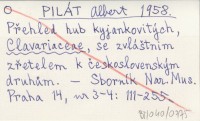 PILÁT Albert 1958.
Přehled hub kyjankovitých,
Clavariaceae, se zvláštním
zřetelem k československým
druhům. – Sborník Nár. Mus.
Praha 14, nr 3-4: 111-255.